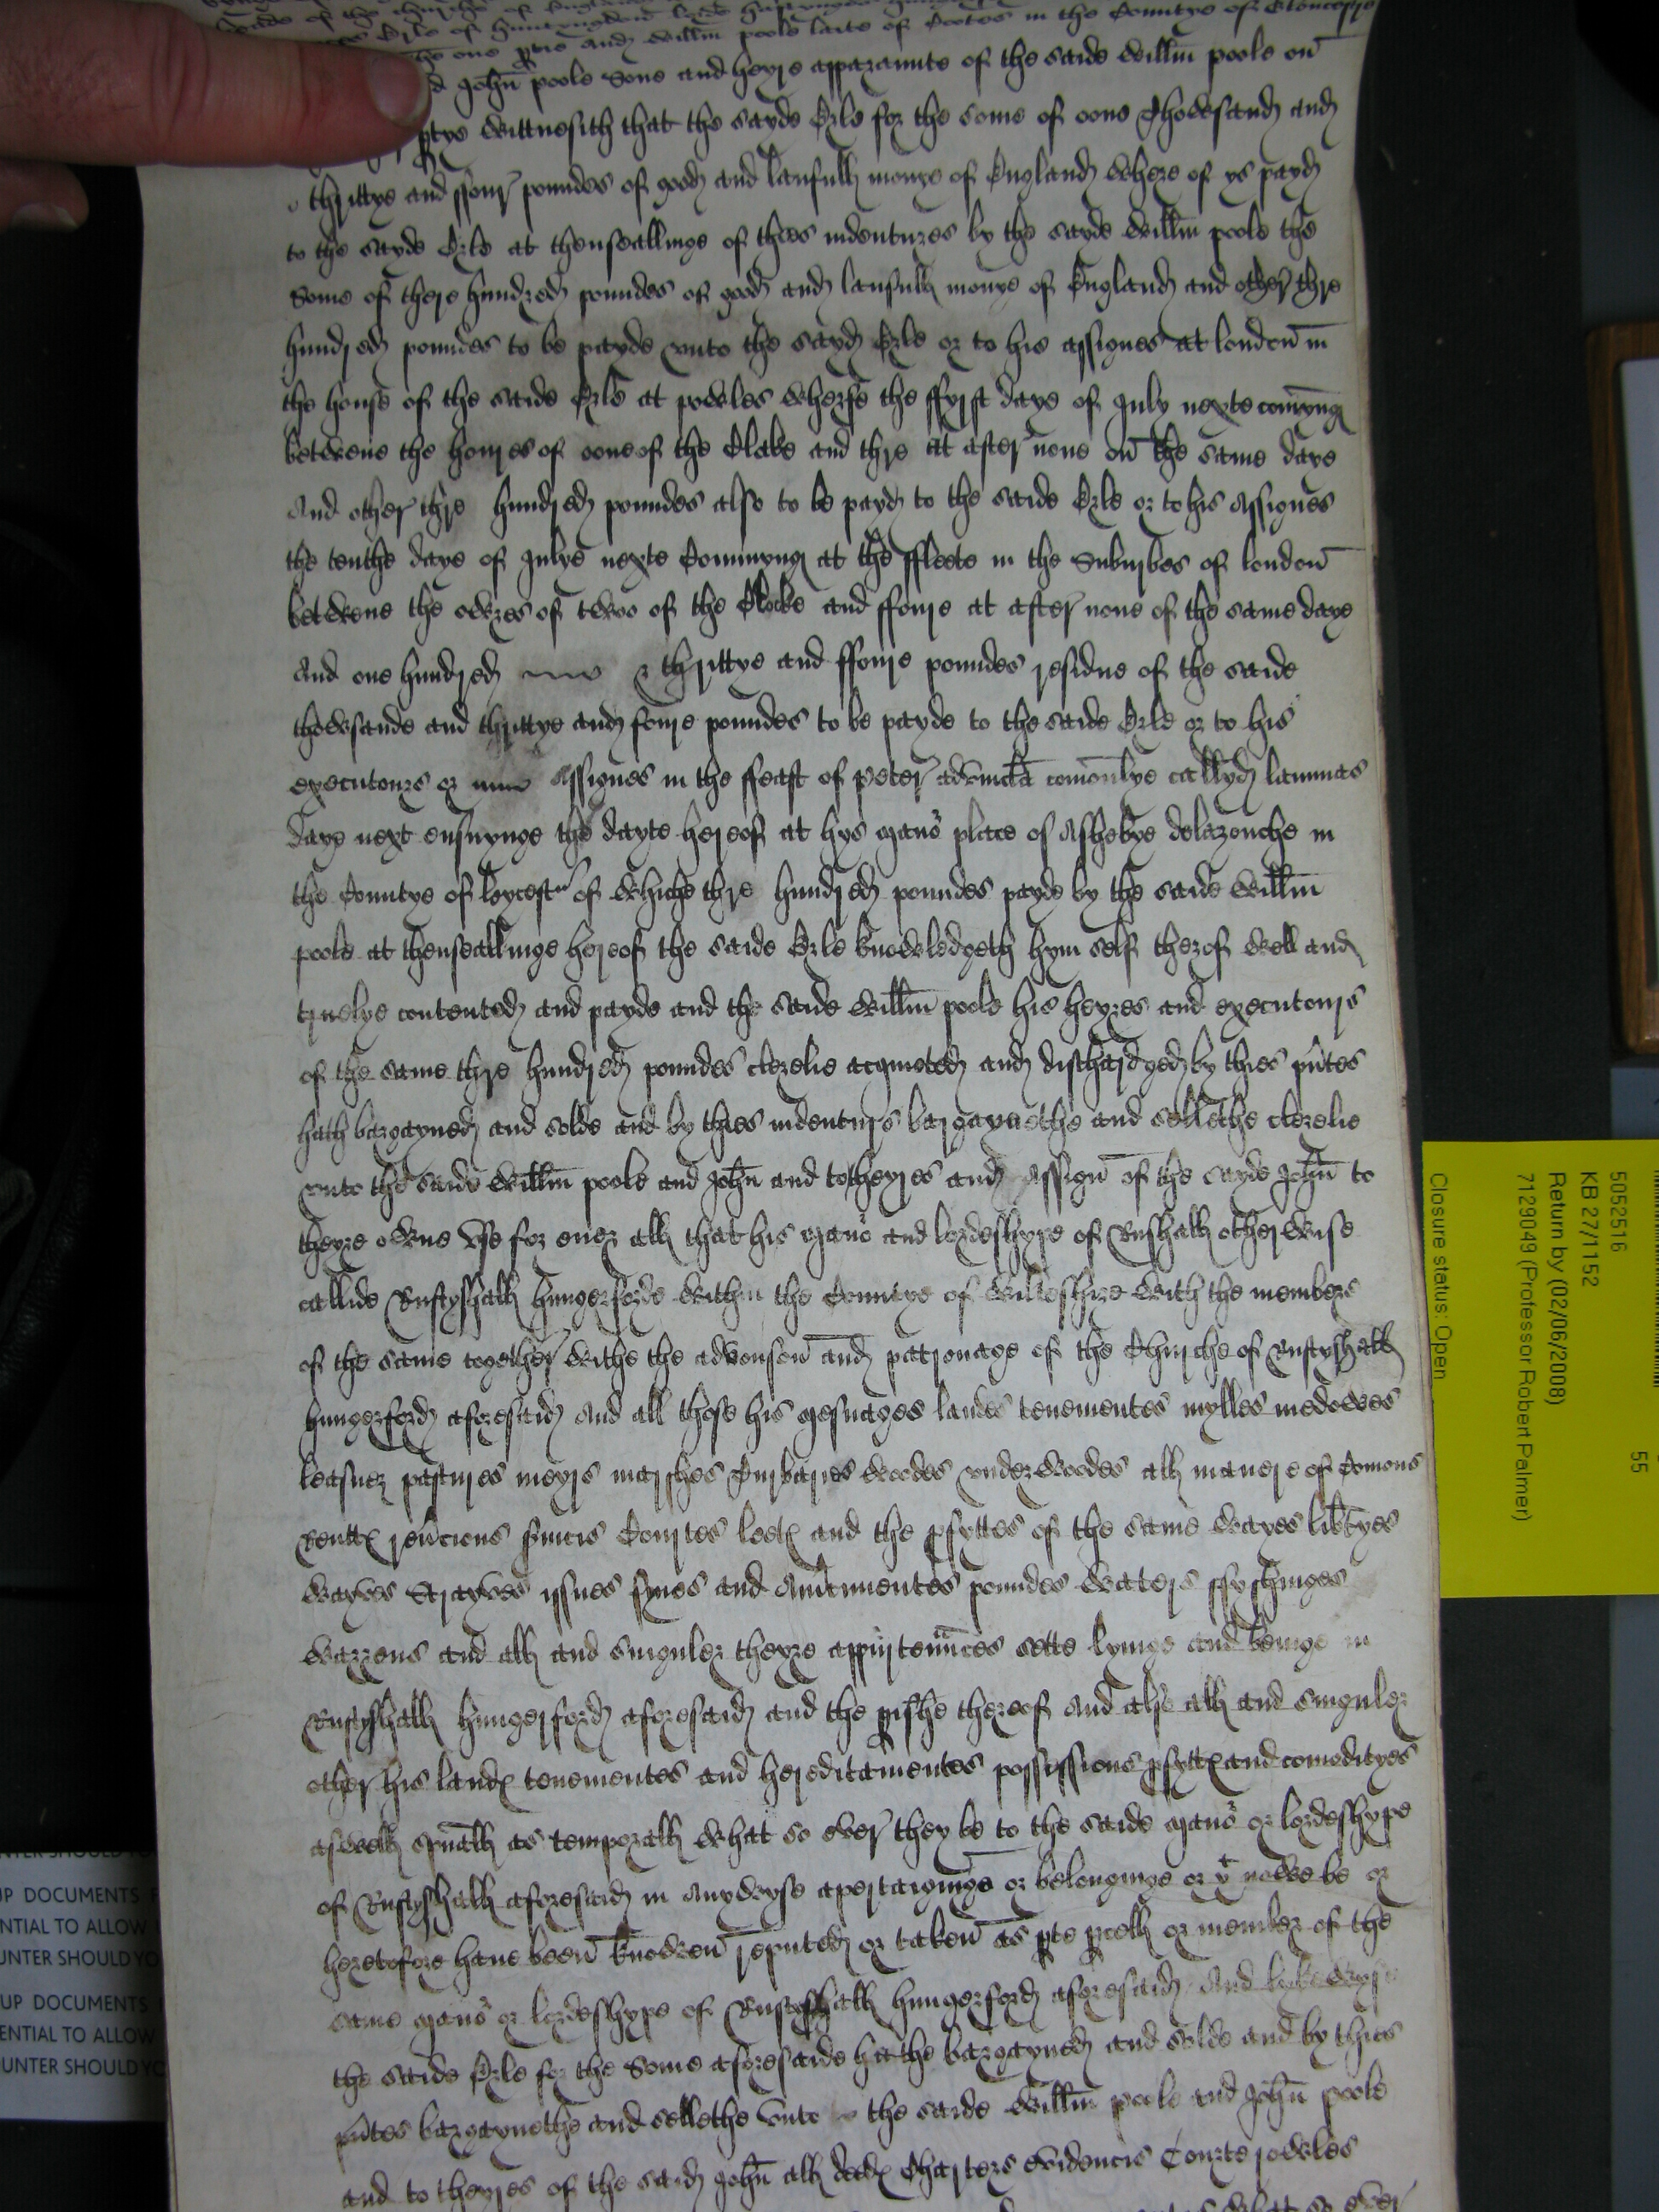 hedde of the Churche of England
Erle of Huntyngdon lorde hastynges
the one ptie and Willm poole laite of Cootes in the Countye of Gloucestre
d John poole sone and heyre apparannte of the saide Willm poole on
ptye Wittnesith that the sayde Erle for the some of oone Thowesand and
thrittye and ffour poundes of good and laufull monye of England where of ys payd
to the sayde Erle at thenseallinge of thies indentures by the sayde Willm poole the
Some of there hundred poundes of good and laufull monye of England and other thre
hundred poundes to be payde vnto the sayd Erle or to his assignes at london in
the house of the saide Erle at powles Wherfe the ffyrst daye of July nexte comyng
betwene the houres of oone of the Clake and thre at after none on the same daye
And other thre hundred poundes also to be payd to the saide Erle or to his Assignes
the tenthe daye of Julye nexte Commyng at the fleete in the Suburbes of london
betwene the owres of twoo of the Clocke and ffoure at after none of the same daye
And one hundred & thrittye and ffoure poundes residue of the saide
thowsande and thrittye and foure poundes to be payde to the saide Erle or to his
executours or Assignes in the ffeast of Peter advincla comonlye callyd lammas
daye next ensuynge the dayte hereof at hys mano place of Asshebye delazouche in
the Countye of leycestr of Whiche thre hundred poundes payde by the saide Willm
poole at thenseallinge hereof the saide Erle knowledgeth hym self therof well and
truelye contented and payde and the saide Willm poole his heyres and executours
of the same thre hundred poundes clerelie acquieted and dischardged by thies pntes
hath bargayned and solde and by thies indenturs bargaynethe and sellethe clerelie
vnto the saide Willm poole and John and totheyres and Assign of the sayde John to
theyre owne Vse for euer all that his mano and lordeshype of Rushall otherwise
callide Rustyshall hungerforde within the Countye of Wilteshire with the members
of the same together withe the advouson and patronage of the Churche of Rustyshall
hungerford aforesaid And all those his mesuages landes tenementes mylles medowes
leasuez pastures meyrs marshes Turbaries woodes vnderwoodes all manere of Comons
Rentes reucions seruicis Courtes leetes and the pfyttes of the same wayes libtyes
wayves Strayves issues fynes and Amciamentes poundes waters ffysshinges
warrens and all and singuler theyre appurtennces sette lyinge and beinge in
Rustyshall hungerford aforesaid and the pishe thereof And also all and singuler
other his landes tenementes and hereditamentes possessions pfyttes and comodityes
aswell spuall as temporall what so ever they be to the saide mano or lordeshype
of Rustyshall aforesaid in Anywyse apertayninge or belonginge or yt nowe be or
heretofore haue been knowen reputed or taken as pte pcell or member of the
same mano or lordeshype of Rustyshall hungerford aforesaid And lykewyse
the saide Erle for the some aforesaide hathe bargayned and solde and by thies
pntes bargaynethe and sellethe vnto the saide Willm poole and John poole
and to theyres of the said John all dedes Charters evidencis Courte rowles
5052516
KB 27/1152
Return by (02/06/2008)
7129049 (Professor Robert Palmer)
Closure status: Open
55
UP DOCUMENTS
NTIAL TO ALLOW
UNTER SHOULD YO
UP DOCUMENTS
ENTIAL TO ALLOW
UNTER SHOULD YO